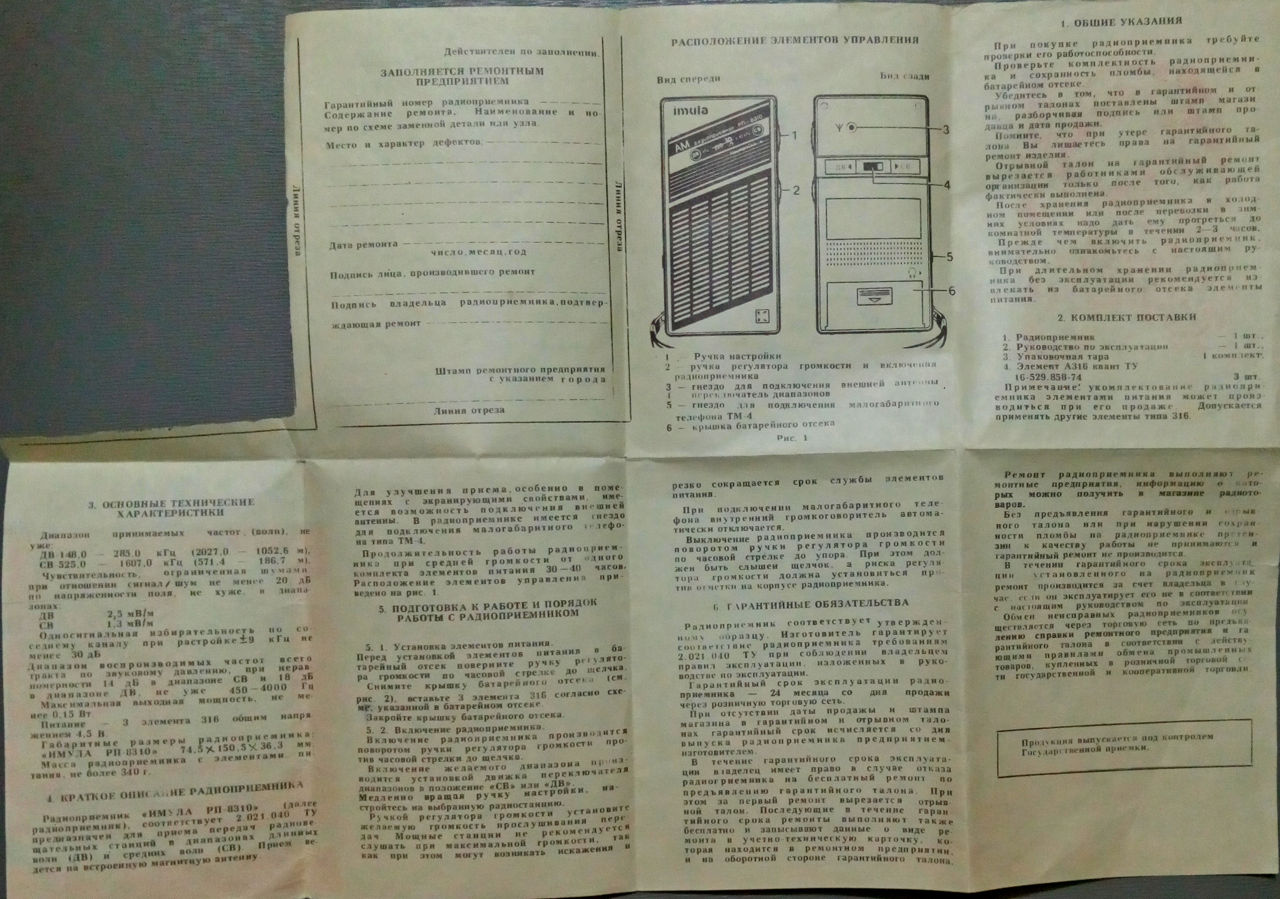 Действителен по заполнении.
ЗАПОЛНЯЕТСЯ РЕМОНТНЫМ
ПРЕДПРИЯТИЕМ
Гарантийный номер радиоприемника
Содержание ремонта. Наименование и но-
мер по схеме замененной детали или узла.
Место и характер дефектов.
Дата ремонта
число, месяц, год
Подпись лица, производившего ремонт
Подпись владельца радиоприемника, подтвер-
ждающая ремонт
Штамп ремонтного предприятия
с указанием города
Линия отреза
Линия отреза
Линия отреза
РАСПОЛОЖЕНИЕ ЭЛЕМЕНТОВ УПРАВЛЕНИЯ
Вид спереди
Вид сзади
imula
AM
1
2
3
4
5
6
1 — Ручка настройки
2 ручка регулятора громкости и включения
радиоприемника
3 — гнездо для подключения внешней антенны
4 переключатель диапазонов
5 — гнездо для подключения малогабаритного
телефона ТМ-4
6 — крышка батарейного отсека
Рис. 1
1. ОБЩИЕ УКАЗАНИЯ
При покупке радиоприемника требуйте
проверки его работоспособности.
Проверьте комплектность радиоприемни-
ка и сохранность пломбы, находящейся в
батарейном отсеке.
Убедитесь в том, что в гарантийном и от
рывном талонах поставлены штамп магази
на, разборчивая подпись или штамп про-
давца и дата продажи.
Помните, что при утере гарантийного та-
лона Вы лишаетесь права на гарантийный
ремонт изделия.
Отрывной талон на гарантийный ремонт
вырезается работниками обслуживающей
организации только после того, как работа
фактически выполнена.
После хранения радиоприемника в холод-
ном помещении или после перевозки в зим-
них условиях надо дать ему прогреться до
комнатной температуры в течении 2—3 часов.
Прежде чем включить радиоприемник,
внимательно ознакомьтесь с настоящим ру-
ководством.
При длительном хранении радиоприем-
ника без эксплуатации рекомендуется из
влекать из батарейного отсека элементы
питания.
2. КОМПЛЕКТ ПОСТАВКИ
1. Радиоприемник — 1 шт.,
2. Руководство по эксплуатации — 1 шт.,
3. Упаковочная тара 1 комплект,
4. Элемент А316 квант ТУ
16-529.858-74 3 шт.
Примечание: укомплектование радиопри-
емника элементами питания может произ-
водиться при его продаже Допускается
применять другие элементы типа 316.
3. ОСНОВНЫЕ ТЕХНИЧЕСКИЕ
ХАРАКТЕРИСТИКИ
Диапазон принимаемых частот, (волн), не
уже:
ДВ 148,0 — 285,0 кГц (2027,0 — 1052,6 м),
СВ 525,0 — 1607,0 кГц (571,4 — 186,7 м).
Чувствительность, ограниченная шумами
при отношении сигнал/шум не менее 20 дБ
по напряженности поля, не хуже, в диапа-
зонах:
ДВ 2,5 мВ/м
СВ 1,3 мВ/м
Односигнальная избирательность по со-
седнему каналу при растройке ±9 кГц не
менее 30 дБ
Диапазон воспроизводимых частот всего
тракта по звуковому давлению, при нерав-
номерности 14 дБ в диапазоне СВ и 18 дБ
в диапазоне ДВ, не уже 450—4000 Гц
Максимальная выходная мощность, не ме-
нее 0,15 Вт
Питание — 3 элемента 316 общим напря
жением 4,5 В.
Габаритные размеры радиоприемника:
«ИМУЛА РП-8310» 74,5×150,5×36,3 мм.
Масса радиоприемника с элементами пи-
тания, не более 340 г.
4. КРАТКОЕ ОПИСАНИЕ РАДИОПРИЕМНИКА
Радиоприемник «ИМУЛА РП-8310» (далее
радиоприемник), соответствует 2.021.040 ТУ
предназначен для приема передач радиове-
щательных станций в диапазонах длинных
волн (ДВ) и средних волн (СВ). Прием ве-
дется на встроенную магнитную антенну.
Для улучшения приема, особенно в поме-
щениях с экранирующими свойствами, име-
ется возможность подключения внешней
антенны. В радиоприемнике имеется гнездо
для подключения малогабаритного телефо-
на типа ТМ-4.
Продолжительность работы радиоприем-
ника при средней громкости от одного
комплекта элементов питания 30—40 часов.
Расположение элементов управления при-
ведено на рис. 1.
5. ПОДГОТОВКА К РАБОТЕ И ПОРЯДОК
РАБОТЫ С РАДИОПРИЕМНИКОМ
5. 1. Установка элементов питания.
Перед установкой элементов питания в ба-
тарейный отсек поверните ручку регулято-
ра громкости по часовой стрелке до щелчка.
Снимите крышку батарейного отсека (см.
рис. 2), вставьте 3 элемента 316 согласно схе-
ме, указанной в батарейном отсеке.
Закройте крышку батарейного отсека.
5. 2. Включение радиоприемника.
Включение радиоприемника производится
поворотом ручки регулятора громкости про-
тив часовой стрелки до щелчка.
Включение желаемого диапазона произ-
водится установкой движка переключателя
диапазонов в положение «СВ» или «ДВ».
Медленно вращая ручку настройки, на-
стройтесь на выбранную радиостанцию.
Ручкой регулятора громкости установите
желаемую громкость прослушивания пере-
дач Мощные станции не рекомендуется
слушать при максимальной громкости, так
как при этом могут возникать искажения и
резко сокращается срок службы элементов
питания.
При подключении малогабаритного теле
фона внутренний громкоговоритель автома-
тически отключается.
Выключение радиоприемника производится
поворотом ручки регулятора громкости
по часовой стрелке до упора. При этом дол-
жен быть слышен щелчок, а риска регуля
тора громкости должна установиться про-
тив отметки на корпусе радиоприемника.
6. ГАРАНТИЙНЫЕ ОБЯЗАТЕЛЬСТВА
Радиоприемник соответствует утвержден-
ному образцу. Изготовитель гарантирует
соответствие радиоприемника требованиям
2.021.040 ТУ при соблюдении владельцем
правил эксплуатации, изложенных в руко-
водстве по эксплуатации.
Гарантийный срок эксплуатации радио-
приемника — 24 месяца со дня продажи
через розничную торговую сеть.
При отсутствии даты продажи и штампа
магазина в гарантийном и отрывном тало-
нах гарантийный срок исчисляется со дня
выпуска радиоприемника предприятием-
изготовителем.
В течение гарантийного срока эксплуата-
ции владелец имеет право в случае отказа
радиоприемника на бесплатный ремонт по
предъявлению гарантийного талона. При
этом за первый ремонт вырезается отрыв
ной талон. Последующие в течение гаран
тийного срока ремонты выполняют также
бесплатно и записывают данные о виде ре-
монта в учетно-техническую карточку, ко-
торая находится в ремонтном предприятии,
и на оборотной стороне гарантийного талона.
Ремонт радиоприемника выполняют ре-
монтные предприятия, информацию о кото-
рых можно получить в магазине радиото-
варов.
Без предъявления гарантийного и отрыв
ного талона или при нарушении сохран-
ности пломбы на радиоприемнике претен-
зии к качеству работы не принимаются и
гарантийный ремонт не производится.
В течении гарантийного срока эксплуата-
ции установленного на радиоприемник
ремонт производится за счет владельца в слу-
чае, если он эксплуатирует его не в соответствии
с настоящим руководством по эксплуатации
Обмен неисправных радиоприемников осу
ществляется через торговую сеть по предъяв-
лению справки ремонтного предприятия и га
рантийного талона в соответствии с действу-
ющими правилами обмена промышленных
товаров, купленных в розничной торговой се-
ти государственной и кооперативной торговли
Продукция выпускается под контролем
Государственной приемки.